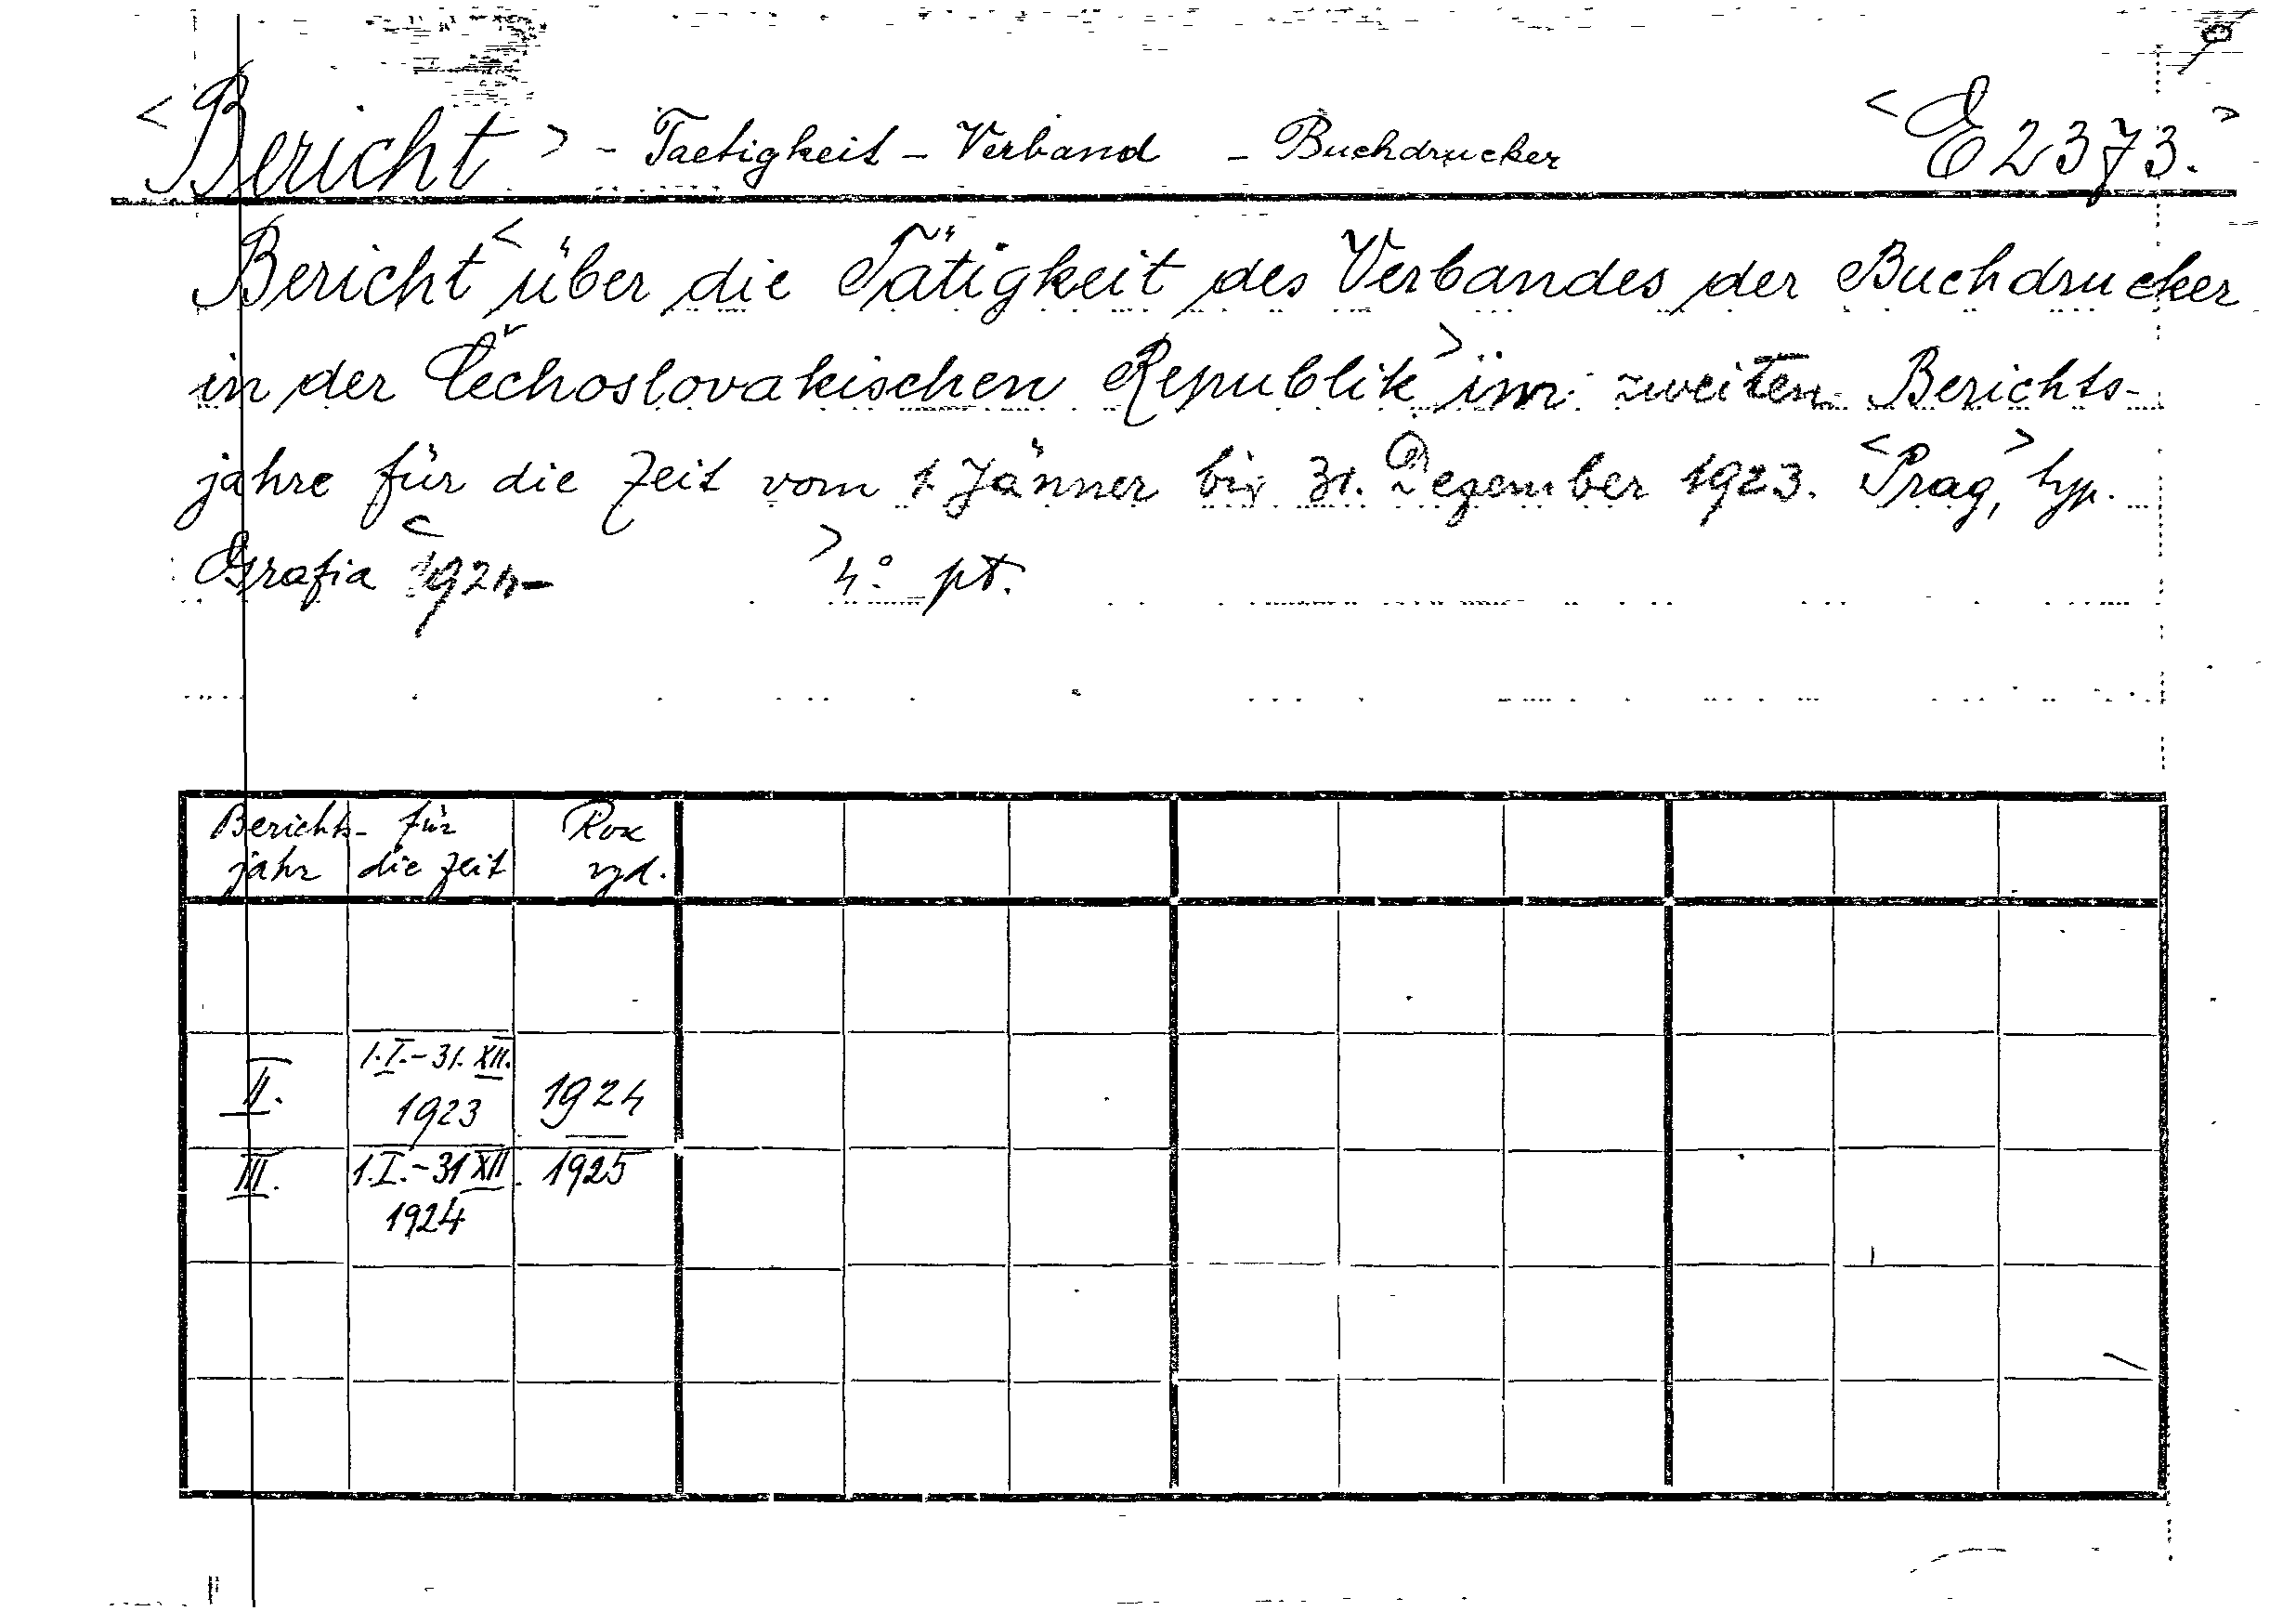 <Bericht> - Taetigkeit - Verband - Buchdrucker <E 2373.>
Bericht <über die Tätigkeit des Verbandes der Buchdrucker
in der Čechoslovakischen Republik> im zweiten Berichts-
jahre für die Zeit vom 1. Jänner bis 31. Dezember 1923. <Prag,> typ.
Grafia <1924- >4° pt.
Berichts- für Rok
jahr die Zeit vyd.
II. 1.I.-31.XII. 1923 1924
III. 1.I.-31.XII. 1924 1925